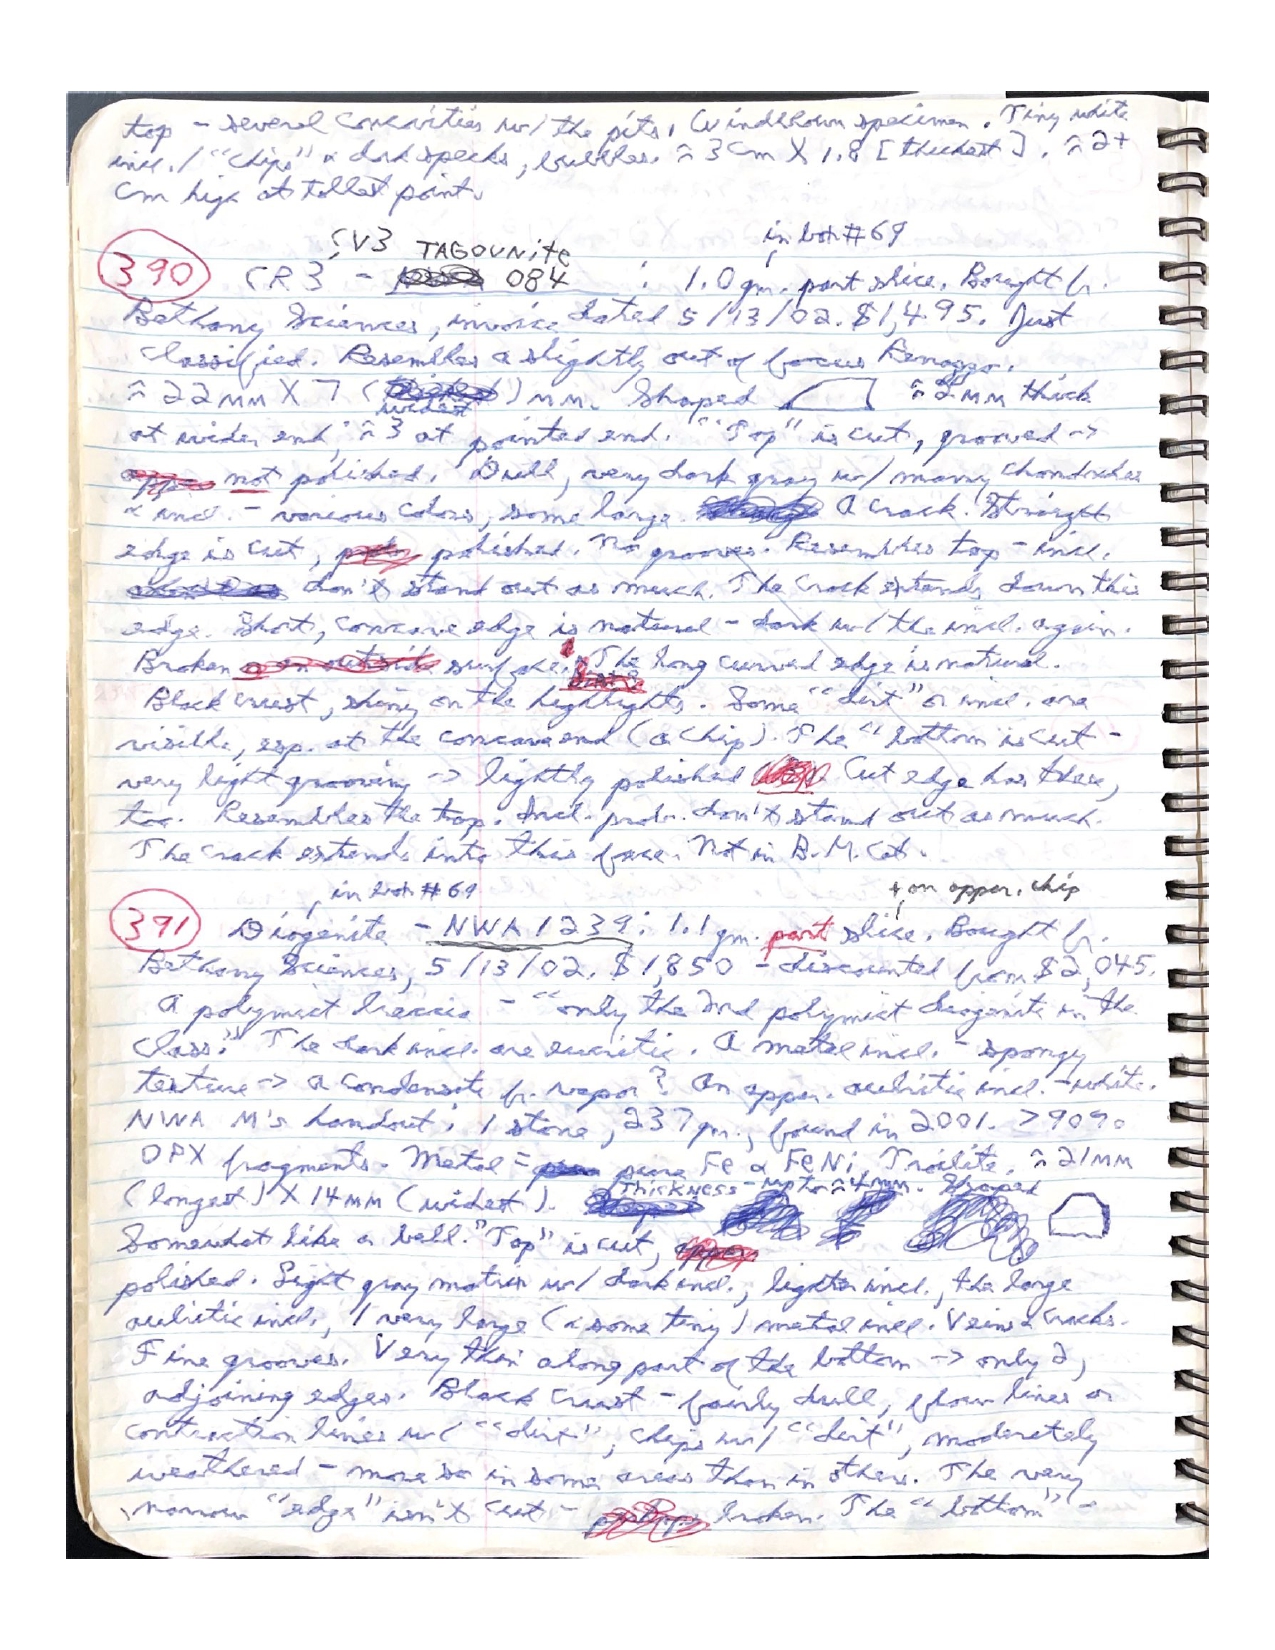 top - several concavities w/ the pits. Windblown specimen. Tiny white
incl./"chips" & dark specks, bubbles. ≈3cm X 1.8 [thickest]. ≈2+
cm high at tallest point.
CV3 TAGOUNITE in box #69
390 CR3 - 084 : 1.0 gm. part slice. Bought fr.
Bethany Sciences, invoice dated 5/13/02. $1,495. Just
classified. Resembles a slightly out of focus Renazzo.
≈22mm X 7 (widest) mm. Shaped ≈2mm thick
at wider end, ≈3 at pointed end. "Top" is cut, grooved ->
not polished. Dull, very dark gray w/ many chondrules
& incl. - various colors, some large. A crack. Straight
edge is cut, polished. No grooves. Resembles top - incl.
don't stand out as much. The crack extends down this
edge. Short, concave edge is natural - dark w/ the incl. again.
Broken surface. The long curved edge is natural.
Black crust, shiny on the highlights. Some "dirt" or incl. are
visible, esp. at the concave end (a chip). The "bottom is cut -
very light grooving -> lightly polished Cut edge has these,
too. Resembles the top. Incl. prob. don't stand out as much.
The crack extends into this face. Not in B.M. Cat.
in box #69 + an apper. chip
391 Diogenite - NWA 1239: 1.1 gm. part slice. Bought fr.
Bethany Sciences, 5/13/02. $1,850 - discounted from $2,045.
A polymict breccia - "only the 2nd polymict diogenite in the
class." The dark incl. are eucritic. A metal incl. - spongy
texture -> a condensate fr. vapor? An apper. aubritic incl. - white.
NWA M's handout: 1 stone, 237 gm., found in 2001. >90%
OPX fragments. Metal = pure Fe & FeNi. Troilite. ≈21mm
(longest) X 14mm (widest). Thickness - up to ≈4mm. Shaped
Somewhat like a bell. "Top" is cut,
polished. Light gray matrix w/ dark incl., lighter incl., the large
aubritic incl., 1 very large (& some tiny) metal incl. Veins & cracks.
Fine grooves. Very thin along part of the bottom -> only 2,
adjoining edges. Black crust - fairly dull, flow lines or
contraction lines w/ "dirt", chips w/ "dirt", moderately
weathered - more so in some areas than in others. The very
narrow "edge" isn't cut - broken. The "bottom" -